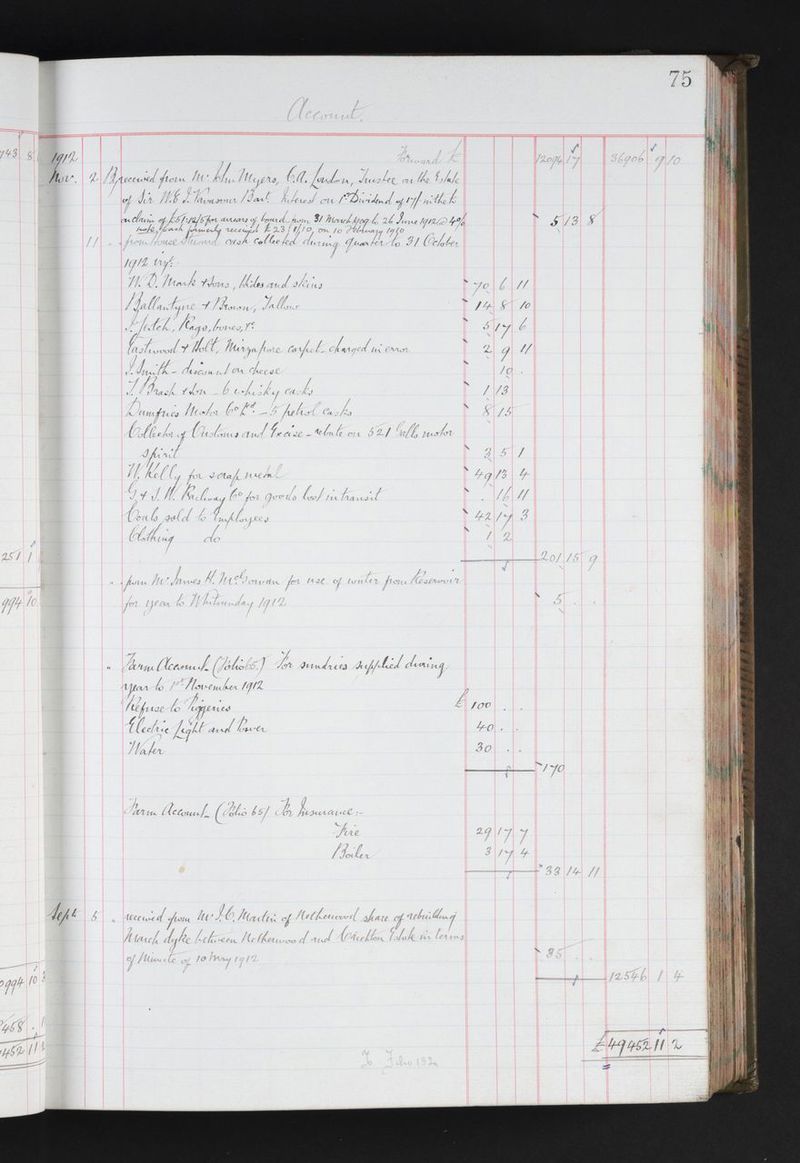 75
Account.
1912 Forward £ 12094 17 36906 9 10
Nov. 2 By received from Mr John Myers, C.A. London, Trustee on the Estate
of Sir W. E. J. Vavasour Bart. Interest on 1st Dividend of 1/- in the £
on claim of for arrears of board from 31 March 1909 to 26 June 1912 @ 4% 5 13 8
note, cash formerly received £23 on 10 February 1910
11 " from House Steward cash collected during quarter to 31 October
1912 viz:
W. D. Mark & Sons, Hides and skins 70 6 11
Ballantyne & Brown, Tallow 14 8 10
Rags, bones, &c 5 17 6
Eastwood & Holt, Mirzapore carpet charged in error 2 9 11
J. Smith - discount on cheese 10 .
J. Brash & Son - 6 whisky casks 1 13
Dumfries Motor Co Ltd. - 5 petrol casks 8 15
Collector of Customs and Excise - rebate on 521 Galls motor
spirit 3 5 1
W. Kelly for scrap metal 49 13 4
G & S. W. Railway Co for goods lost in transit . 16 11
Coals sold to Employees 42 17 3
Clothing do 1 2
201 15 9
" " from Mr James H. McGowan for use of water from Reservoir
for year to Whitsunday 1912 5 . .
" Farm Account (Folio 65) For sundries supplied during
year to 1st November 1912
Refuse to Piggeries £ 100 . .
Electric Light and Power 40 . .
Water 30 . .
170
Farm Account (Folio 65) For Insurance:-
Fire 29 17 7
Boiler 3 17 4
33 14 11
Sept 5 " received from Mr J. C. Martin of Netherwood share of rebuilding
March dyke between Netherwood and Crichton Estate in terms
of Minute of 10 May 1912 35 . .
12546 1 4
£ 49452 11 2
To Folio 132